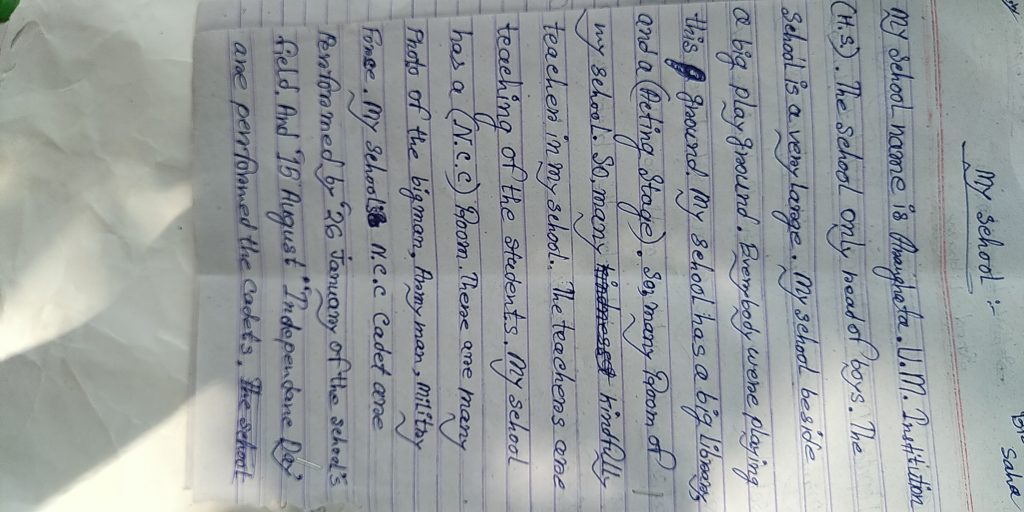 Saha
My School :-
My School name is U.M. Institution
(H.S). The School only head of boys. The
School is a very large. My School beside
a big playground. Everybody were playing
this ground. My school has a big library
and a (Acting Stage). So, many Room of
my school. So, many kindfully
teacher in my school. The teachers are
teaching of the students. My school
has a (N.C.C) Room. There are many
Photo of the bigman, Armyman, Militry
Force. My School N.C.C Cadet are
Performed by 26 January of the school's
field. And 15 August "Independane Day"
are performed the cadets. The school